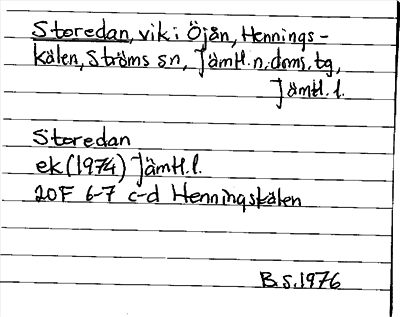 Storedan, vik i Öjån, Hennings-
kälen, Ströms sn, Jämtl.n.doms.tg,
Jämtl. l.
Storedan
ek (1974) Jämtl. l.
20F 6-7 c-d Henningskälen
B.S. 1976